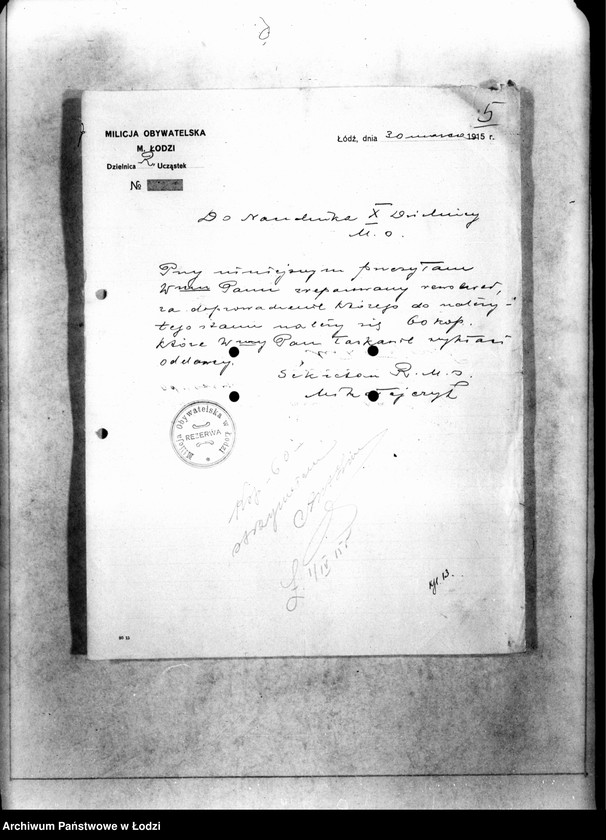 5
MILICJA OBYWATELSKA
M. ŁODZI
Dzielnica R. Ucząstek
№
Łódź, dnia 30 marca 1915 r.
Do Naczelnika X Dzielnicy
M. O.
Przy niniejszym przesyłam
W Panu zreparowany rewolwer,
za doprowadzenie którego do należy-
tego stanu należy się 60 kop.
które W Pan łaskawie
oddawcy.
R. M. O.
Mikołajczyk
Milicja Obywatelska w Łodzi
REZERWA
kop. 60
otrzymałem
1/IV 15 r.
80 15
Archiwum Państwowe w Łodzi